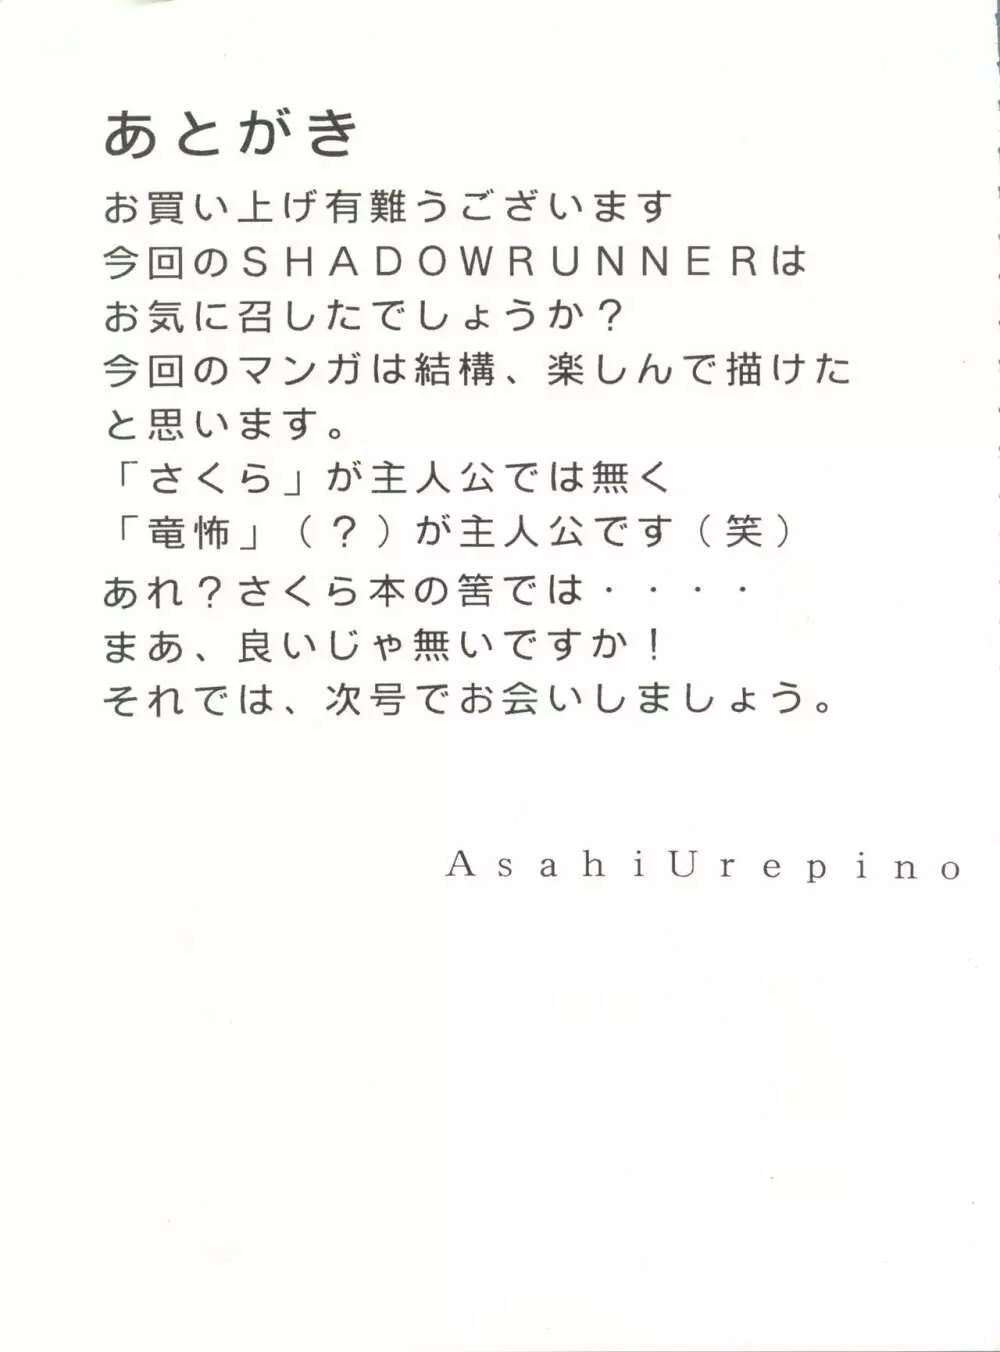 あとがき
お買い上げ有難うございます
今回のＳＨＡＤＯＷＲＵＮＮＥＲは
お気に召したでしょうか？
今回のマンガは結構、楽しんで描けた
と思います。
「さくら」が主人公では無く
「竜怖」（？）が主人公です（笑）
あれ？さくら本の筈では・・・・
まあ、良いじゃ無いですか！
それでは、次号でお会いしましょう。
ＡｓａｈｉＵｒｅｐｉｎｏ